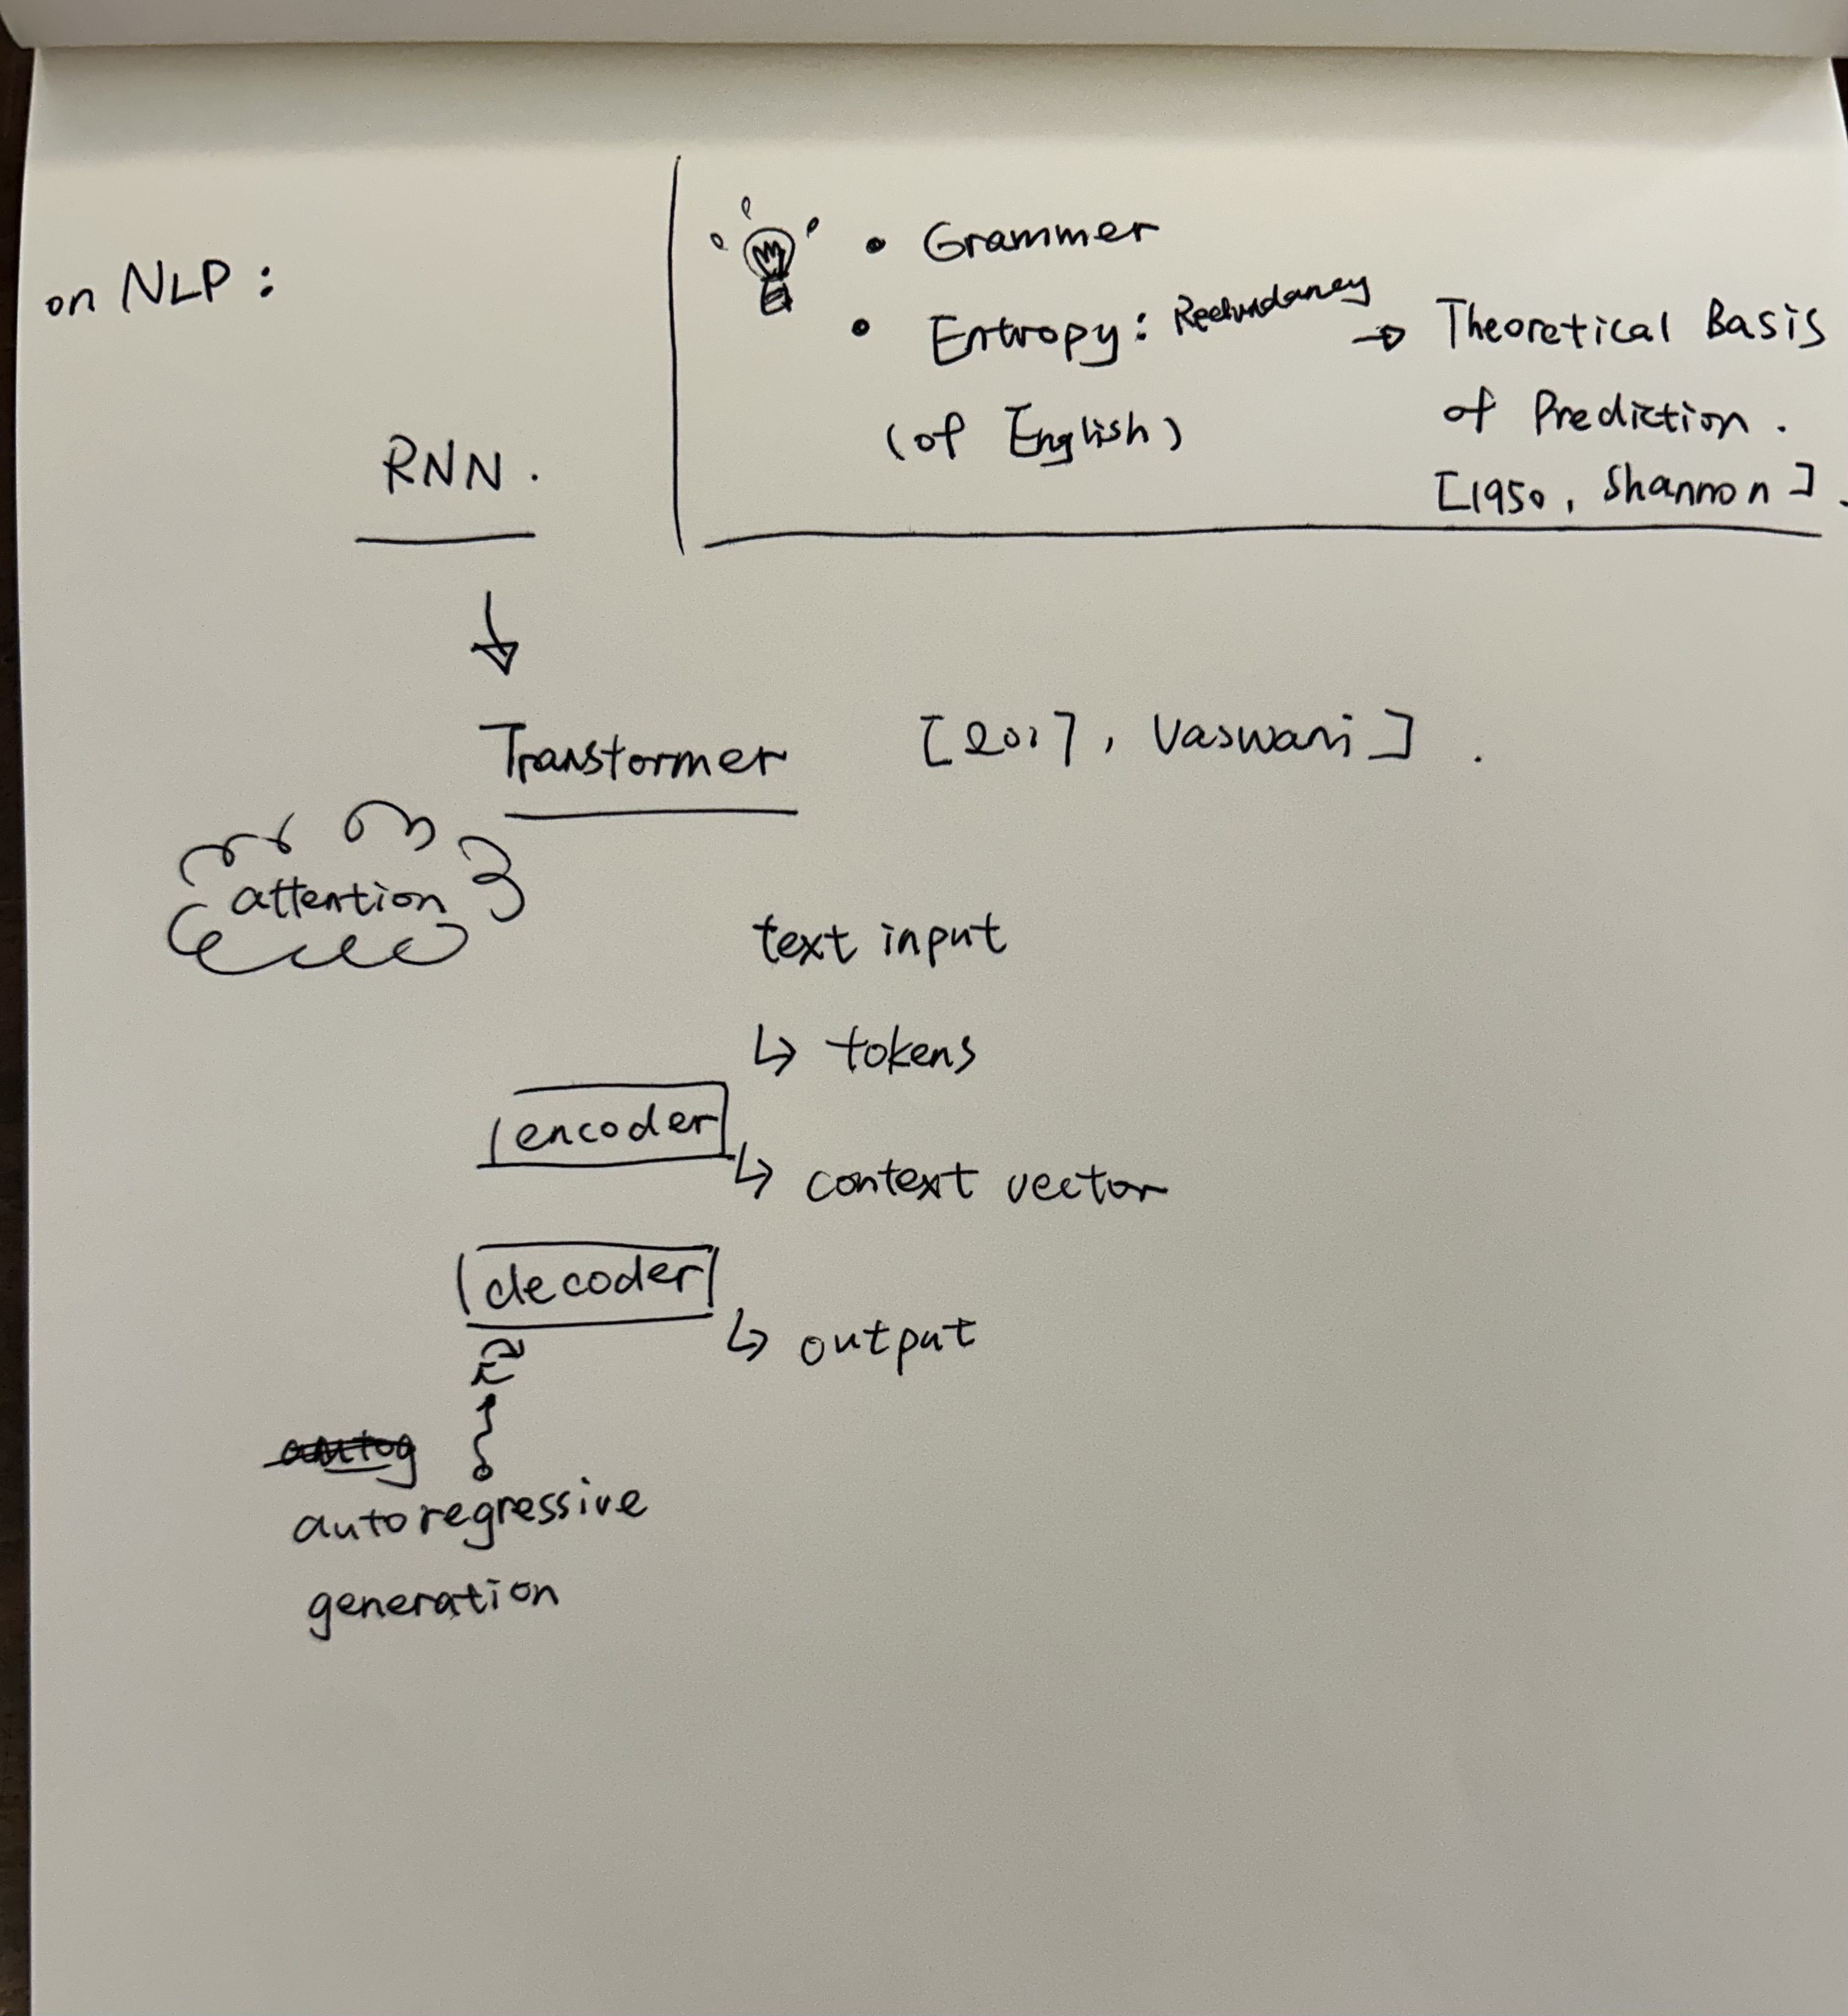 on NLP :
• Grammer
• Entropy : Redundancy → Theoretical Basis
(of English)
of Prediction .
[1950, Shannon] .
RNN .
↓
Transformer [2017, Vaswani] .
attention
text input
↳ tokens
encoder
↳ context vector
decoder
↳ output
autog
autoregressive
generation